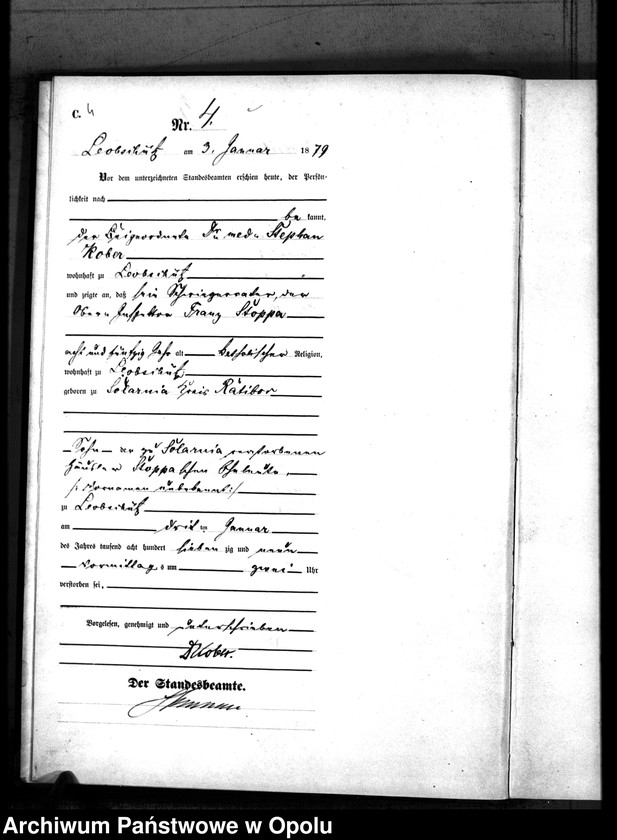 C. 4
Nr. 4.
Leobschütz am 3. Januar 1879
Vor dem unterzeichneten Standesbeamten erschien heute, der Persön-
lichkeit nach
be kannt,
der Beigeordnete Dr. med. Stephan
Kober
wohnhaft zu Leobschütz
und zeigte an, daß sein Schwiegervater, der
Ober-Inspektor Franz Stoppa
acht und fünfzig Jahr alt katholischer Religion,
wohnhaft zu Leobschütz
geboren zu Solarnia Kreis Ratibor
Sohn der zu Solarnia verstorbenen
Häusler Stoppa'schen Eheleute,
/: Vornamen unbekannt :/
zu Leobschütz
am dritten Januar
des Jahres tausend acht hundert sieben zig und neun
Vormittags um zwei Uhr
verstorben sei.
Vorgelesen, genehmigt und unterschrieben
Dr Kober.
Der Standesbeamte.
Archiwum Państwowe w Opolu